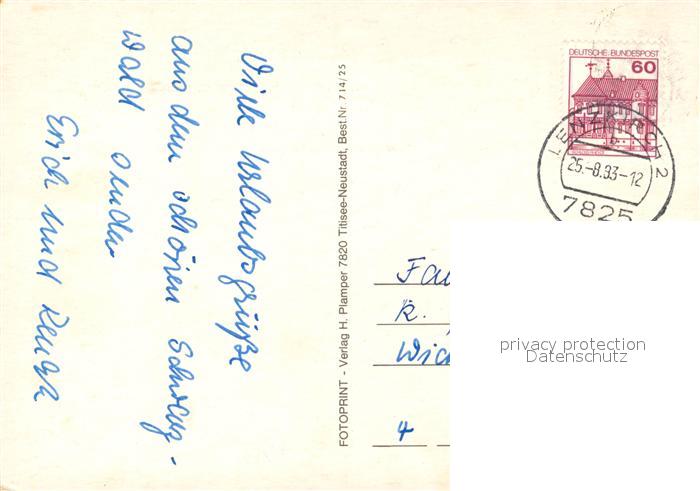 Viele Urlaubsgrüße
aus dem schönen Schwarz-
wald senden
Erich und Renga
FOTOPRINT - Verlag H. Plamper 7820 Titisee-Neustadt, Best.Nr. 714/25
DEUTSCHE BUNDESPOST
60
LENZKIRCH 2
25.-8.83-12
7825
Fam
K.
Wich
4
privacy protection
Datenschutz